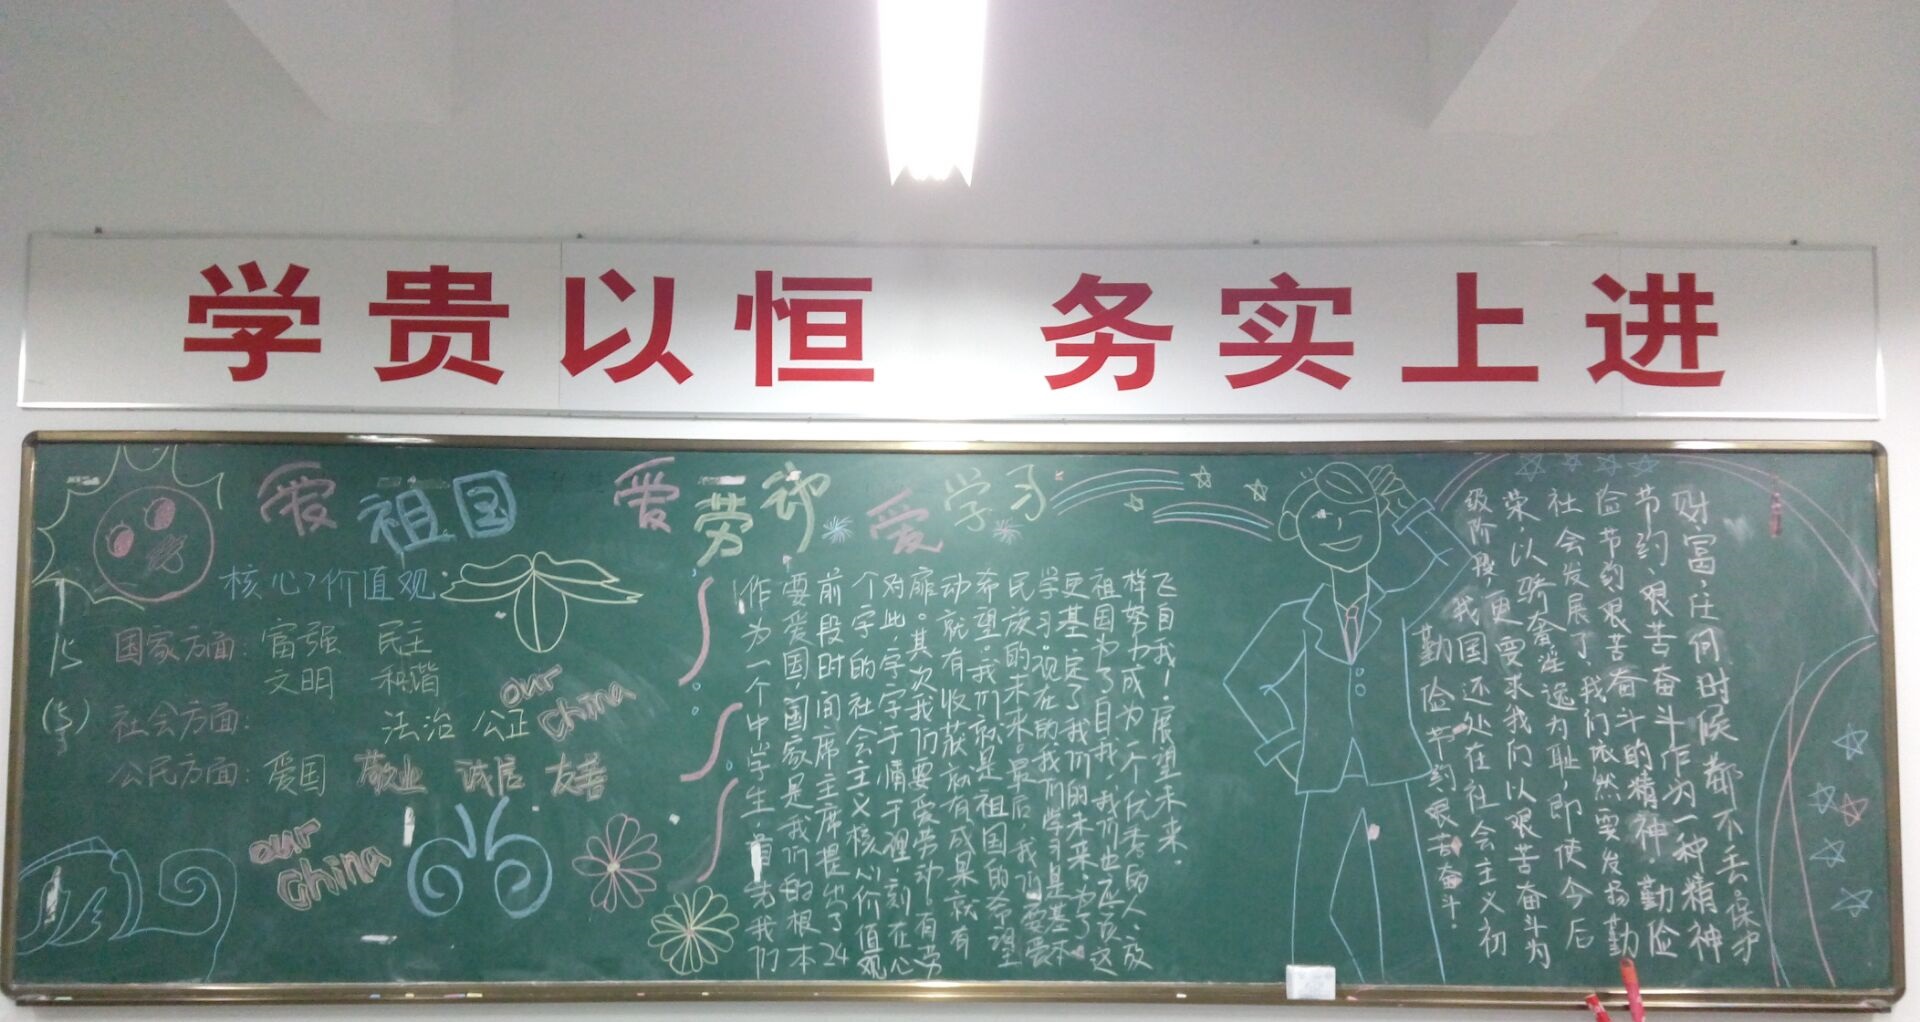 学贵以恒 务实上进
爱祖国 爱劳动 爱学习
核心价值观
国家方面: 富强 民主
文明 和谐
社会方面: 法治 公正
公民方面: 爱国 敬业 诚信 友善
our
China
our
China
作为一个中学生,首先我们
要爱国,国家是我们的根本
前段时间席主席提出了24
个字的社会主义核心价值观
对此,字字于情于理,刻在心
扉。其次我们要爱劳动,有劳
动就有收获就有成果就有
希望。我们就是祖国的希望
民族的未来。最后,我们要爱
学习。现在的我们学习是基本
更基定了我们的未来,为了
祖国为了自我,我们也应该这
样努力成为一个优秀的人,放
飞自我!展望未来。
勤俭节约艰苦奋斗.
我国还处在社会主义初
级阶段,更要求我们以艰苦奋斗为
荣,以骄奢淫逸为耻,即使今后
社会发展了,我们依然要发扬勤
俭节约艰苦奋斗的精神 勤俭
节约、艰苦奋斗作为一种精神
财富,任何时候都不丢.保护